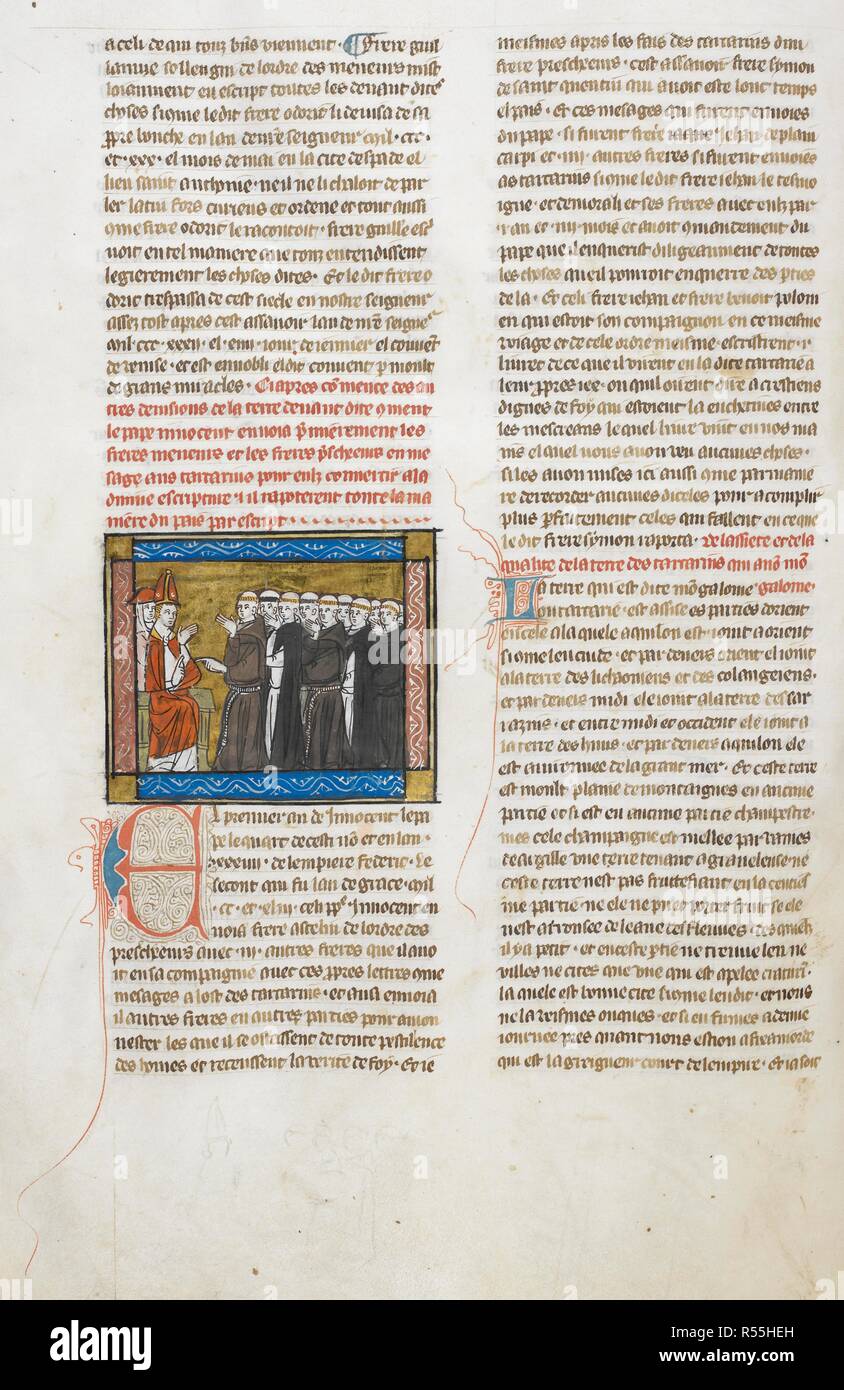 a celi de qui touz biens viennent · Frere guil
laume sollengni de lordre des meneurs mist
loiaument en escript toutes les devant dites
choses si que le dit frere odoric li devisa de sa
bouche en lan de seigneur mil · ccc ·
et · xxx · el mois de mai en la cite de pade el
lieu saint anthynie · ne il ne li chaloit de par
ler latin fors curieus et ordene et tout aussi
que frere odoric le racontoit · frere guille esc
voit en tel maniere que touz entendissent
legierement les choses dites · Et le dit frere o
doric trespassa de cest siecle en nostre seigneur
assez tost apres cest assavoir lan de seigne
mil ccc xxxi · el jour de jenvier el couvent
de venise · et est ennobli el dit couvent par moult
de grans miracles · Ci apres commence des au
tres devisions de la terre devant dite comment
le pape innocent envoia premierement les
freres meneurs et les freres preschens en me
sage aus tartarins pour eulz convertir a la
divine escripture · il raporterent toute la ma
niere du pais par escript
El premier an de Innocent le pa
pe le quart de cesti non et en lan ·
xxxiiii · de lempire federic · Le
secont qui fu lan de grace · mil
· cc · et · xliii · celi pape Innocent en
voia frere ascelin de lordre des
prescheurs avec · iii · autres freres que il avo
it en sa compaignie avec ces propres lettres que
mesages a lost des tartarins · et aussi envoia
il autres freres en autres parties pour amon
nester les que il se ocissent de toute pestilence
des homes et receussent la verite de foy · Et je
meismes apris les fais des tartarins dun
frere prescheeurs · cest assavoir frere symon
de saint quentin qui avoit este lonc temps
el pais · Et ces mesages qui furent envoies
du pape · si furent frere jehan de plain
carpi et · iiii · autres freres si furent envoies
as tartarins si que le dit frere jehan le tesmo
igne · et demora li et ses freres avec eulz par
· i · an et · iiii · mois et avoit commandement du
pape que il enquerist diligeaument de toutes
les choses que il pourroit enquerre des parties
de la · Et celi frere jehan et frere benoit polom
en qui estoit son compaignon en ce meisme
voiage et de cele ordre meisme · escristrent · i ·
livret de ce que il virent en la dite tartarie a
leur propres iex · ou qu il oirent dire a crestiens
dignes de foy qui estoient la enchetives entre
les mescreans le quel livre vint en nos ma
ins el quel nous avon veu aucunes choses ·
si les avon mises ici aussi que par manie
re de recorder aucunes diceles pour acomplir
plus parfaitement celes qui fallent en ce que
le dit frere symon raporta · De lassiete et de la
qualite de la terre des tartarins
La terre qui est dite mongalome · galome ·
ou tartarie · est assise es parties dorient
en cele a la quele aquilon est joint a orient
si que len cuide · et par devers orient el joint
a la terre des et des colangeiens ·
et par devers midi ele joint a la terre des sar
razins · et entre midi et occident ele joint a
la terre des huns · et par devers aquilon ele
est avironnee de la grant mer · Et ceste terre
est moult plaine de montaignes en aucune
partie et si est en aucune partie champestre ·
mes cele champaigne est mellee par
d argille une terre tenant a graveleuse ne
ceste terre nest pas fruttefiant en la centies
me partie ne ele ne puet porter fruit se ele
nest arrousee de leaue des fleuves · des quiex
il y a petit · et en ceste partie ne treuve len ne
villes ne cites que une qui est apelee cratim ·
la quele est bonne cite si que len dit · et nous
ne la veismes onques · et si en fumes a demie
journee pres quant nous estion a
qui est la greigneur court de lempire · Et ja soit
alamy
Image ID: R55HEH
www.alamy.com